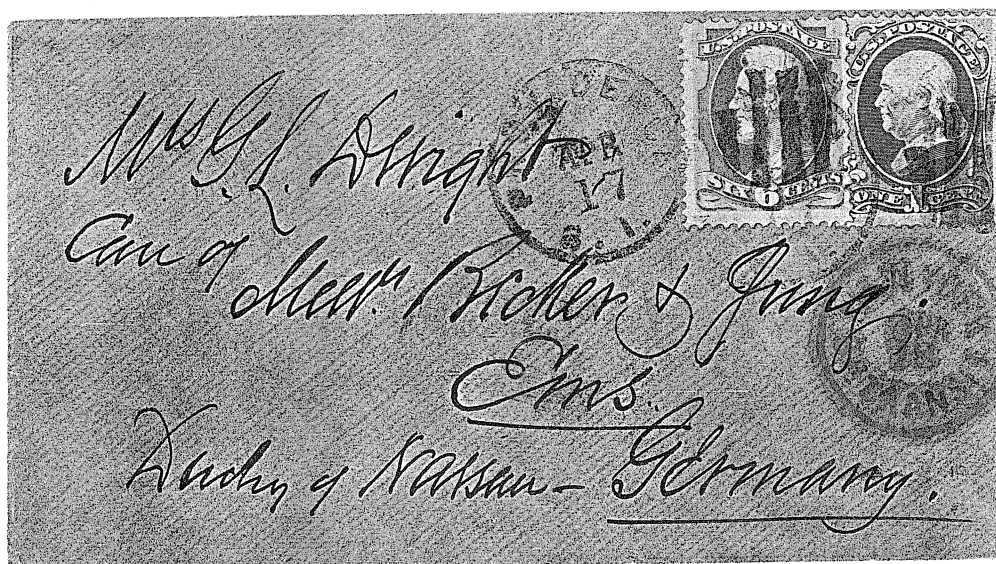 U.S. POSTAGE
SIX 6 CENTS
U.S. POSTAGE
ONE 1 CENT
APR
17
Mrs G. L. Dwight
Care of
Messrs. Bicker & Jung.
Ems.
Duchy of Nassau – Germany.